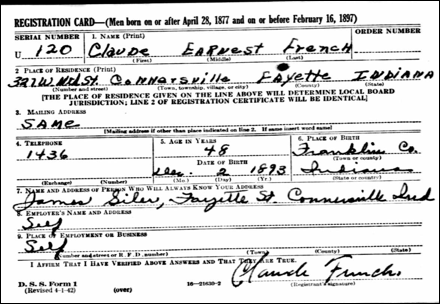 REGISTRATION CARD—(Men born on or after April 28, 1877 and on or before February 16, 1897)
SERIAL NUMBER 1. NAME (Print) ORDER NUMBER
U 120 Claude Earnest French
(First) (Middle) (Last)
2. PLACE OF RESIDENCE (Print)
Connersville Fayette Indiana
(Number and street) (Town, township, village, or city) (County) (State)
[THE PLACE OF RESIDENCE GIVEN ON THE LINE ABOVE WILL DETERMINE LOCAL BOARD
JURISDICTION; LINE 2 OF REGISTRATION CERTIFICATE WILL BE IDENTICAL]
3. MAILING ADDRESS
SAME
[Mailing address if other than place indicated on line 2. If same insert word same]
4. TELEPHONE 5. AGE IN YEARS 6. PLACE OF BIRTH
1436 48 Franklin Co.
DATE OF BIRTH (Town or county)
Dec. 2 1893 Indiana
(Exchange) (Number) (Mo.) (Day) (Yr.) (State or country)
7. NAME AND ADDRESS OF PERSON WHO WILL ALWAYS KNOW YOUR ADDRESS
James Siler, Fayette St. Connersville Ind
8. EMPLOYER'S NAME AND ADDRESS
Self
9. PLACE OF EMPLOYMENT OR BUSINESS
Self
(Number and street or R. F. D. number) (Town) (County) (State)
I AFFIRM THAT I HAVE VERIFIED ABOVE ANSWERS AND THAT THEY ARE TRUE.
Claude French
D. S. S. Form 1
(Revised 4-1-42) (over) 16—21630-2 (Registrant's signature)